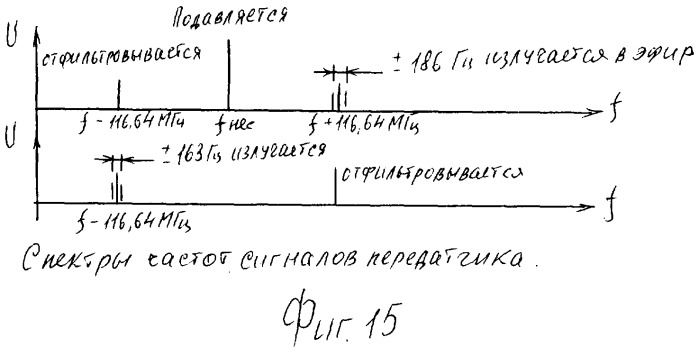 Подавляется
U
отфильтровывается
± 186 Гц излучается в эфир
f - 116,64 МГц
f нес
f + 116,64 МГц
f
U
± 163 Гц излучается
отфильтровывается
f - 116,64 МГц
f
Спектры частот сигналов передатчика.
Фиг. 15